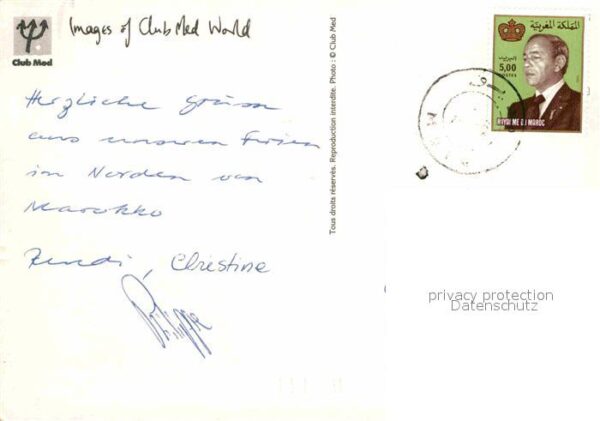 Club Med
Images of Club Med World
Herzliche Grüsse
aus unseren Ferien
im Norden von
Marokko
Ruedi, Christine
Philippe
Tous droits réservés. Reproduction interdite. Photo : © Club Med
المملكة المغربية
5,00
POSTES
ROYAUME DU MAROC
privacy protection
Datenschutz